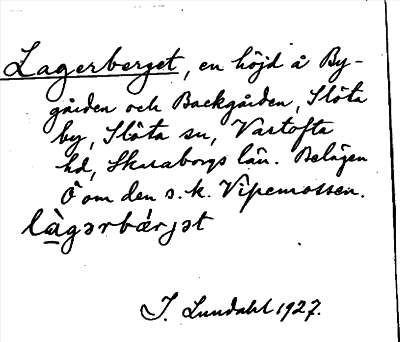 Lagerberget, en höjd å By-
gården och Backgården, Slöta
by, Slöta sn, Vartofta
hd, Skaraborgs län. Belägen
Ö om den s.k. Vipemossen.
là̱gərbǽrjət
J. Lundahl 1927.